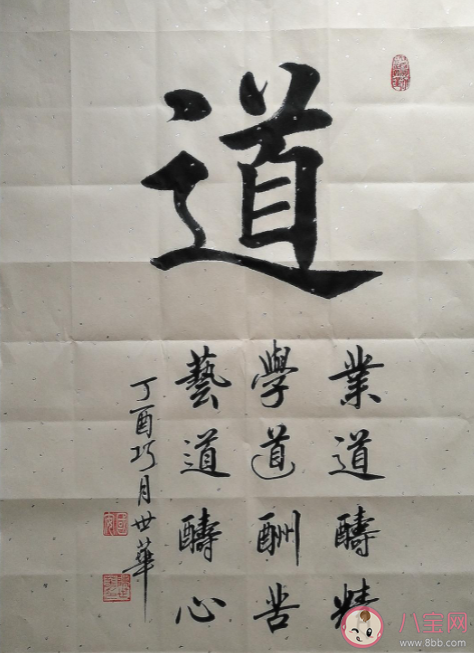 道
業道醻精
學道酬苦
藝道醻心
丁酉巧月世華
八宝网
www.8bb.com